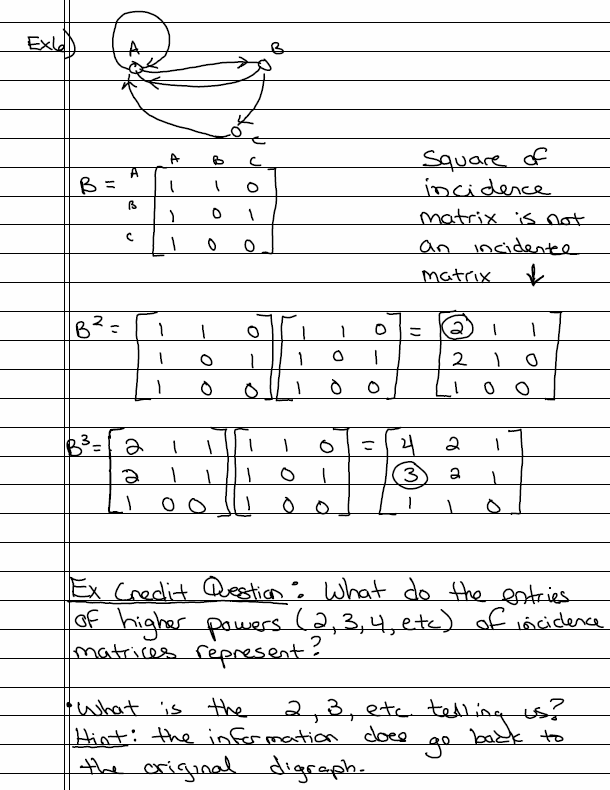 Ex 6)
A
B
C
A B C
B = A 1 1 0
B 1 0 1
C 1 0 0
Square of
incidence
matrix is not
an incidente
matrix ↓
B² = [1 1 0] [1 1 0] = [2 1 1]
[1 0 1] [1 0 1] [2 1 0]
[1 0 0] [1 0 0] [1 0 0]
B³ = [2 1 1] [1 1 0] = [4 2 1]
[2 1 1] [1 0 1] [3 2 1]
[1 0 0] [1 0 0] [1 1 0]
Ex Credit Question: What do the entries
of higher powers (2,3,4, etc) of incidence
matrices represent?
• What is the 2, 3, etc. telling us?
Hint: the information does go back to
the original digraph.